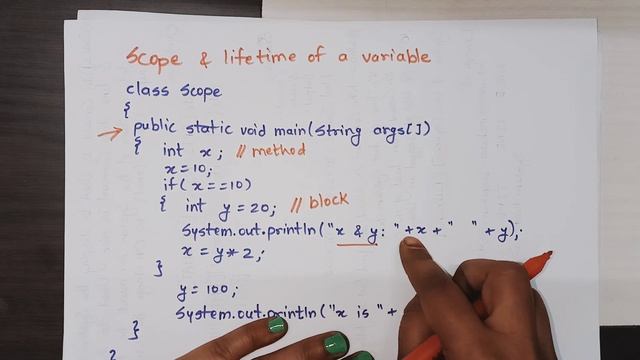 Scope & lifetime of a variable
class Scope
{
public static void main(String args[])
{ int x; // method
x=10;
if(x==10)
{ int y=20; // block
System.out.println("x & y: "+x+" "+y);
x = y*2;
}
y=100;
System.out.println("x is "+
}
}